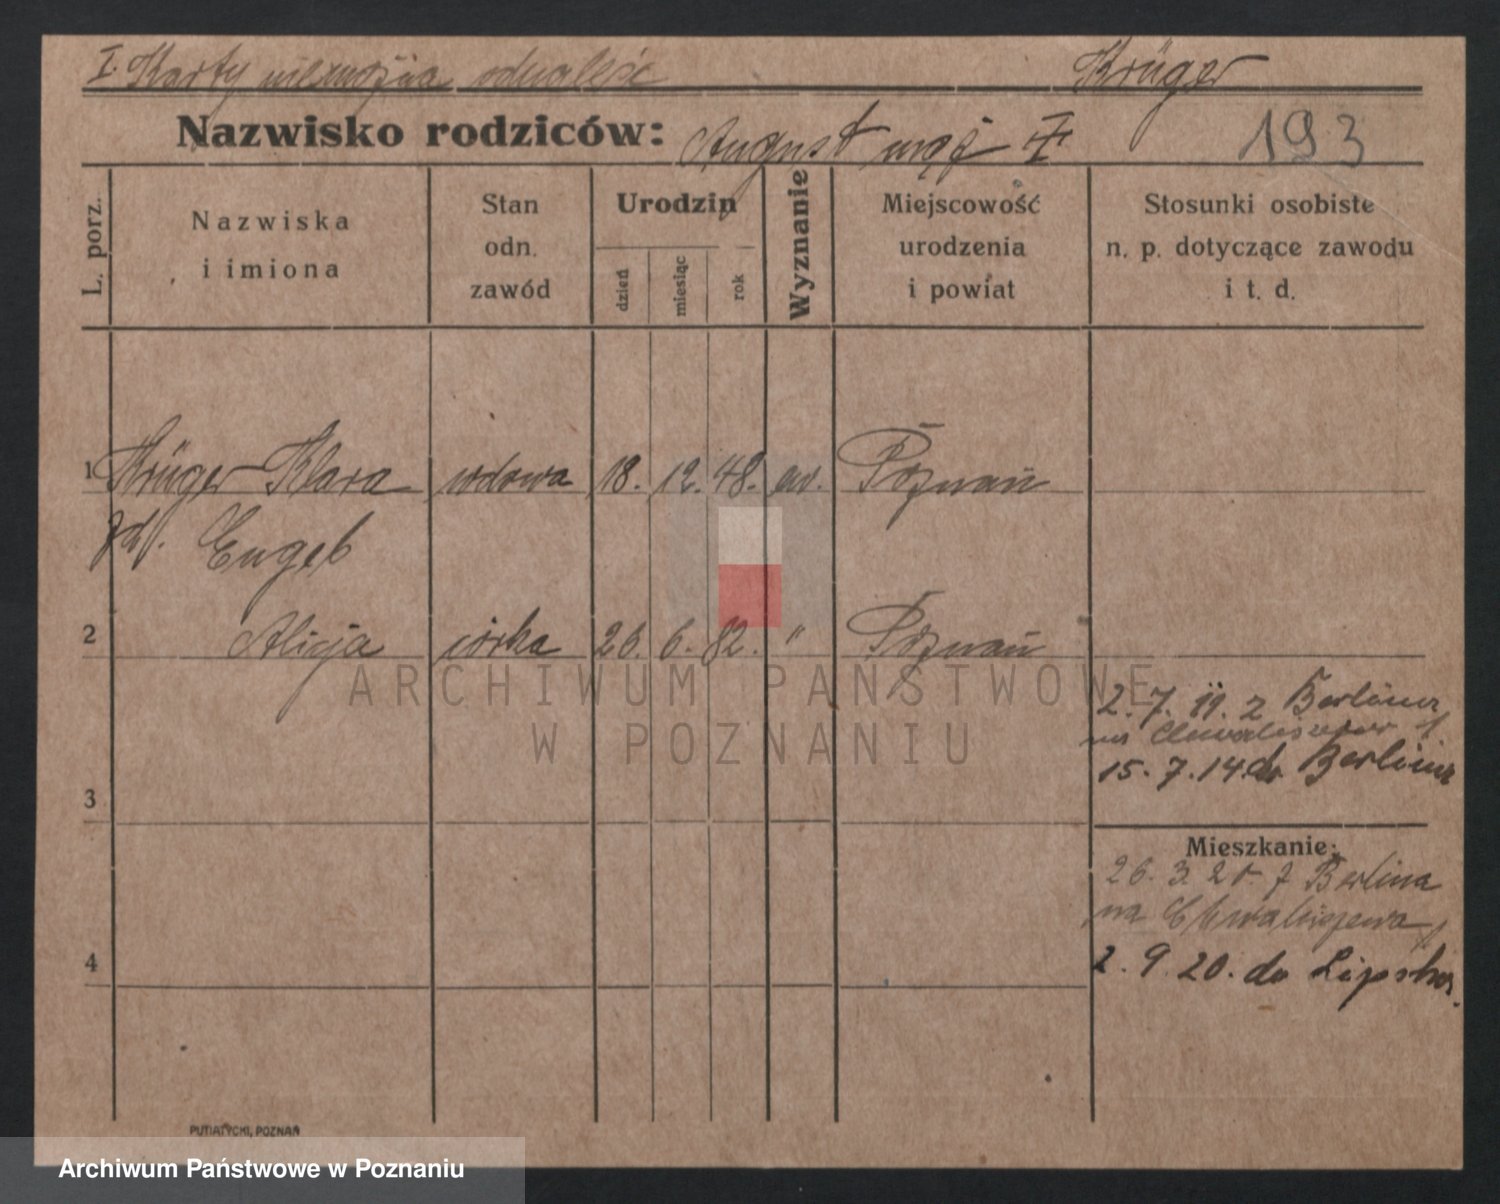 I. Karty niemożna odnaleść Krüger
Nazwisko rodziców: August mąż I
193
L. porz.
Nazwiska
i imiona
Stan
odn.
zawód
Urodzin
dzień
miesiąc
rok
Wyznanie
Miejscowość
urodzenia
i powiat
Stosunki osobiste
n. p. dotyczące zawodu
i t. d.
1 Krüger Klara wdowa 18. 12. 48. ew. Poznań
2 Alicja córka 26. 6. 82. " Poznań
ARCHIWUM PAŃSTWOWE
W POZNANIU
2. 7. 11. z Berlina
na
15. 7. 14. do Berlina
3
Mieszkanie:
26. 3. 20. z Berlina
na Chwaliszewo
4
2. 9. 20. do Lipska.
PUTIATYCKI, POZNAŃ
Archiwum Państwowe w Poznaniu